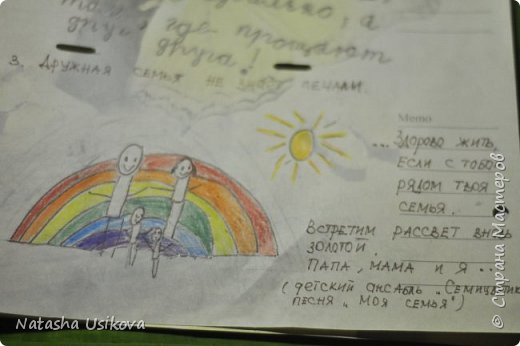 друг где прощают
друга!
3. Дружная семья не знает печали.
Memo
... Здорово жить,
если с тобо
рядом твоя
семья.
Встретим рассвет вись
золотой.
Папа, мама и я ...
(детский ансабль „Семицветик"
песня „Моя семья")
© Страна Мастеров
Natasha Usikova